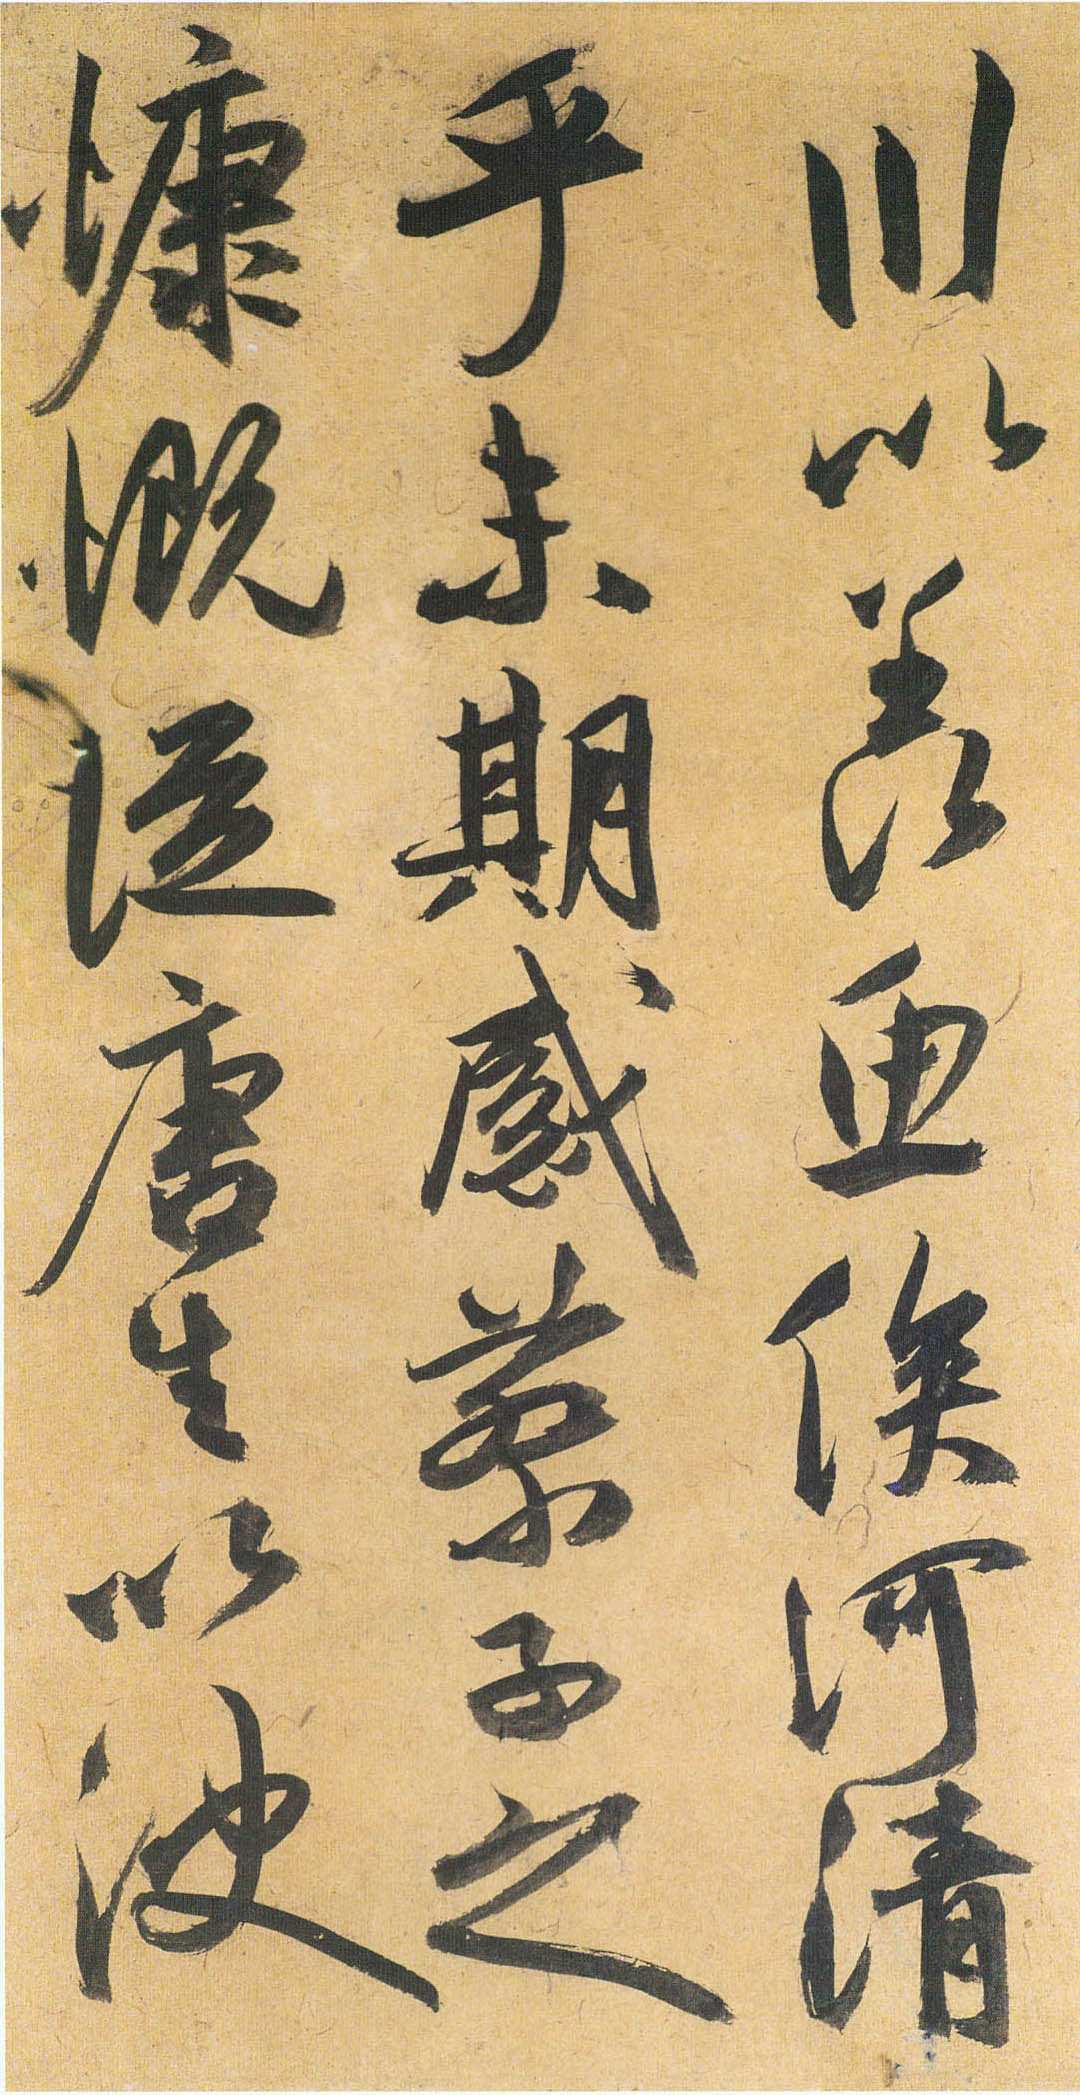 川以羨魚俟河清
乎未期感蔡子之
慷慨從唐生以決